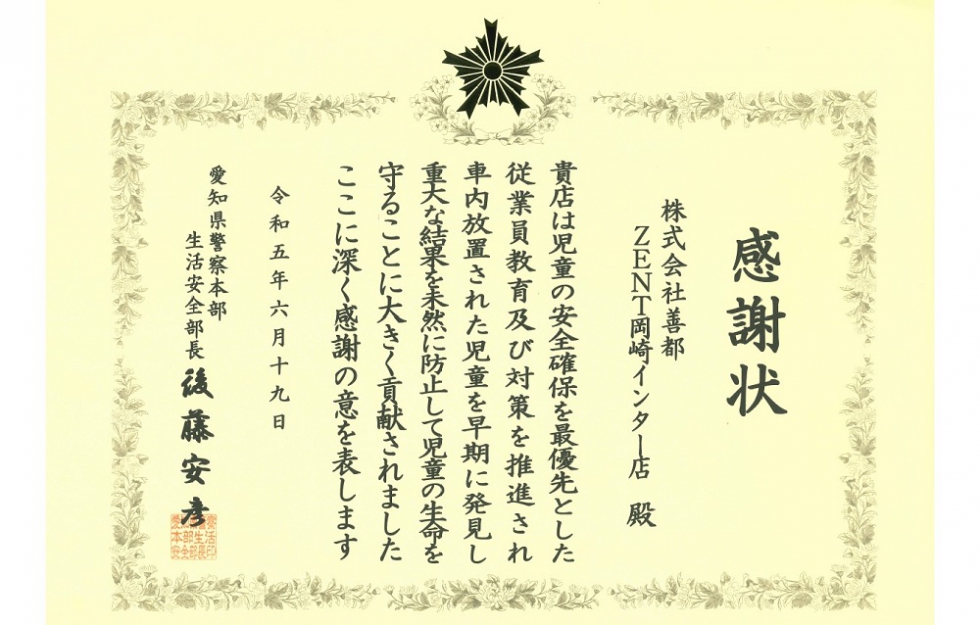 感謝状
株式会社善都
ZENT岡崎インター店 殿
貴店は児童の安全確保を最優先とした
従業員教育及び対策を推進され
車内放置された児童を早期に発見し
重大な結果を未然に防止して児童の生命を
守ることに大きく貢献されました
ここに深く感謝の意を表します
令和五年六月十九日
愛知県警察本部
生活安全部長 後藤安彦